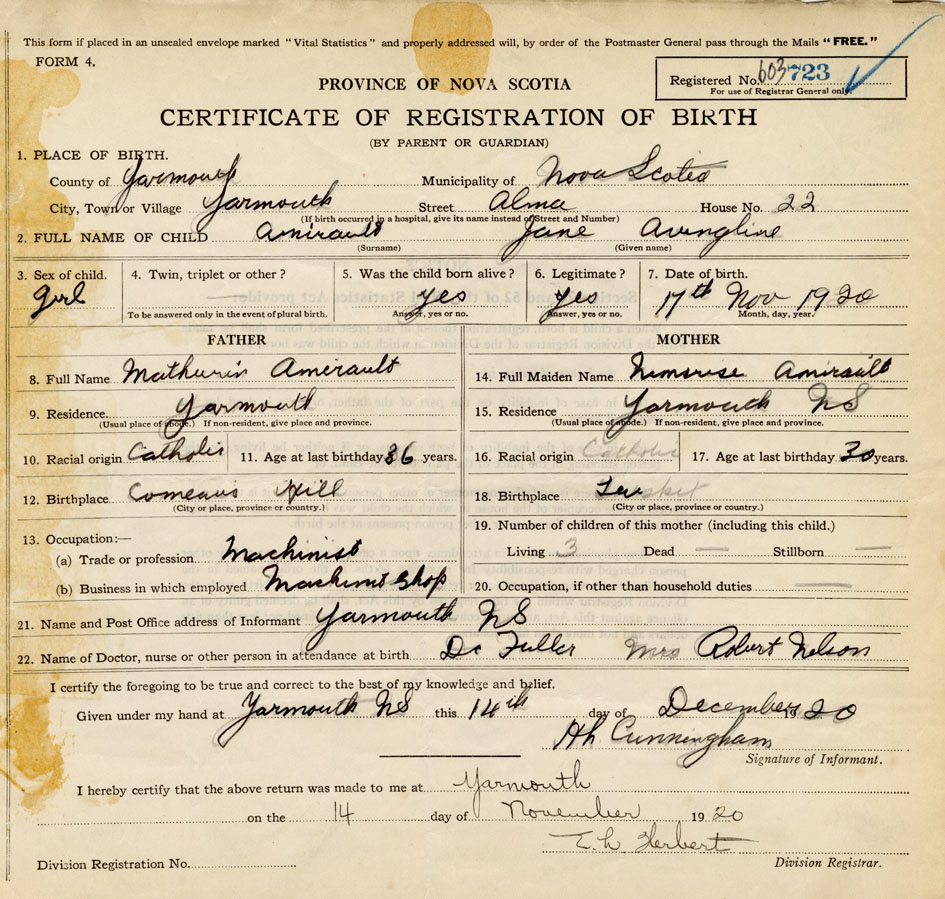 This form if placed in an unsealed envelope marked "Vital Statistics" and properly addressed will, by order of the Postmaster General pass through the Mails "FREE."
FORM 4.
Registered No. 603723
For use of Registrar General only.
PROVINCE OF NOVA SCOTIA
CERTIFICATE OF REGISTRATION OF BIRTH
(BY PARENT OR GUARDIAN)
1. PLACE OF BIRTH.
County of Yarmouth Municipality of Nova Scotia
City, Town or Village Yarmouth Street Alma House No. 22
(If birth occurred in a hospital, give its name instead of Street and Number)
2. FULL NAME OF CHILD Amirault Jane Avingline
(Surname) (Given name)
3. Sex of child. 4. Twin, triplet or other? 5. Was the child born alive? 6. Legitimate? 7. Date of birth.
girl — yes yes 17th Nov 1920
To be answered only in the event of plural birth. Answer, yes or no. Answer, yes or no. Month, day, year.
FATHER MOTHER
8. Full Name Mathurin Amirault
14. Full Maiden Name Amirault
9. Residence Yarmouth
15. Residence Yarmouth NS
(Usual place of abode.) If non-resident, give place and province.
(Usual place of abode.) If non-resident, give place and province.
10. Racial origin Catholic 11. Age at last birthday 36 years.
16. Racial origin Catholic 17. Age at last birthday 30 years.
12. Birthplace Comeaus Hill
(City or place, province or country.)
18. Birthplace Tusket
(City or place, province or country.)
13. Occupation:—
(a) Trade or profession Machinist
(b) Business in which employed Machinist Shop
19. Number of children of this mother (including this child.)
Living 3 Dead — Stillborn —
20. Occupation, if other than household duties —
21. Name and Post Office address of Informant Yarmouth NS
22. Name of Doctor, nurse or other person in attendance at birth Dr Fuller Mrs Robert Nelson
I certify the foregoing to be true and correct to the best of my knowledge and belief.
Given under my hand at Yarmouth NS this 14th day of December 1920
Hh Cunningham
Signature of Informant.
I hereby certify that the above return was made to me at Yarmouth
on the 14 day of November 1920
E. h. Herbert
Division Registration No.
Division Registrar.